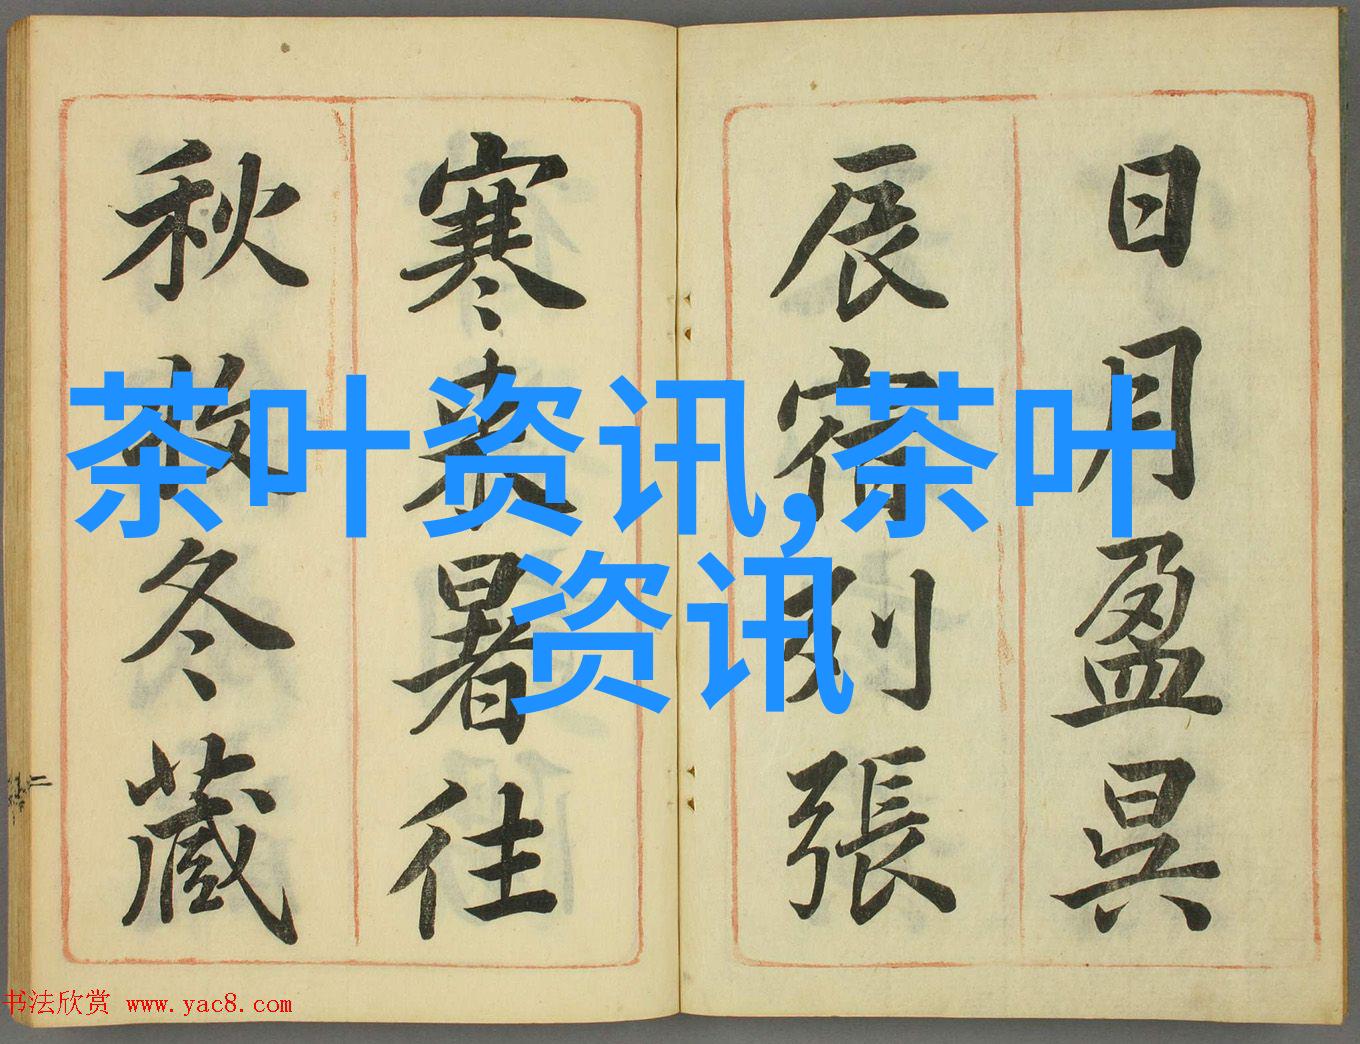 日月盈昃
辰宿列張
寒來暑往
秋收冬藏
茶叶资讯,茶叶
资讯
书法欣赏 www.yac8.com